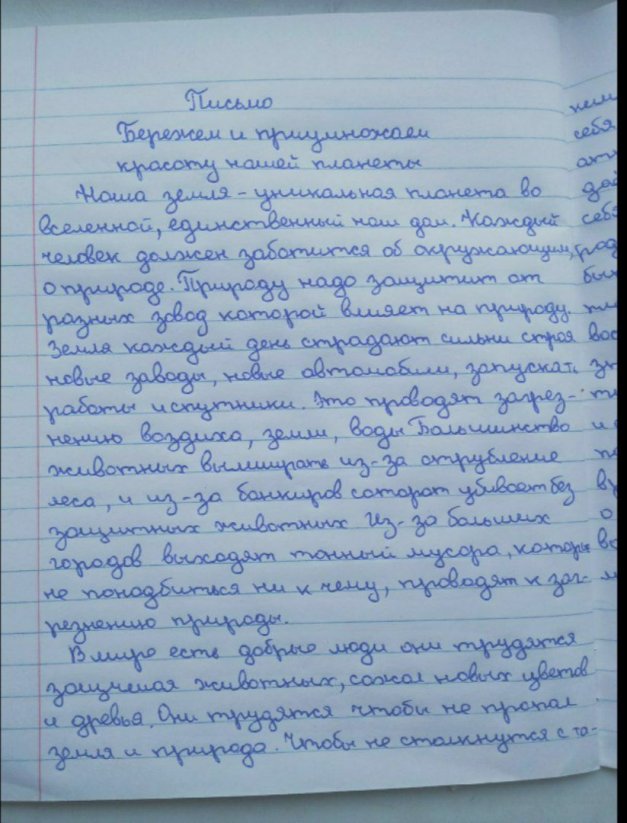 Письмо
Бережем и приумножаем
красоту нашей планеты
Наша земля - уникальная планета во
вселенной, единственный наш дом. Каждый
человек должен заботится об окружающим,
о природе. Природу надо защитит от
разных завод которой влияет на природу.
Земля каждый день страдают сильни строя
новые заводы, новые автомобили, запускать
работы и спутники. Это проводят загрез-
нению воздиха, земли, воды Большинство
животных вымирать из-за отрубление
леса, и из-за банкиров которат убивает без
защитных животных Из-за больших
городов выходят тонный мусора, которы
не понадбиться ни к чему, проводят к заг-
резнению природы.
В мире есть добрые люди они трудятся
защищая животных, сожал новых цветов
и древья. Они трудятся чтобы не пропал
земля и природа. Чтобы не столкнутся с та-